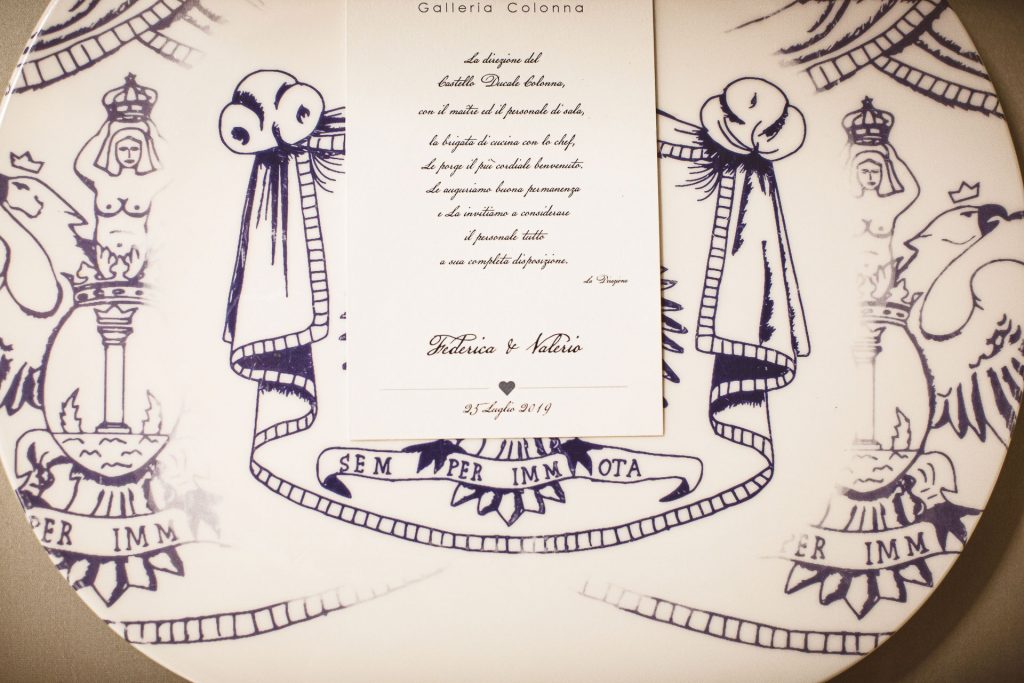 Galleria Colonna
La direzione del
Castello Ducale Colonna,
con il maitre ed il personale di sala,
la brigata di cucina con lo chef,
Le porge il più cordiale benvenuto.
Le auguriamo buona permanenza
e La invitiamo a considerare
il personale tutto
a sua completa disposizione.
La Direzione
Federica & Valerio
25 Luglio 2019
SEM PER IMM OTA
PER IMM
PER IMM